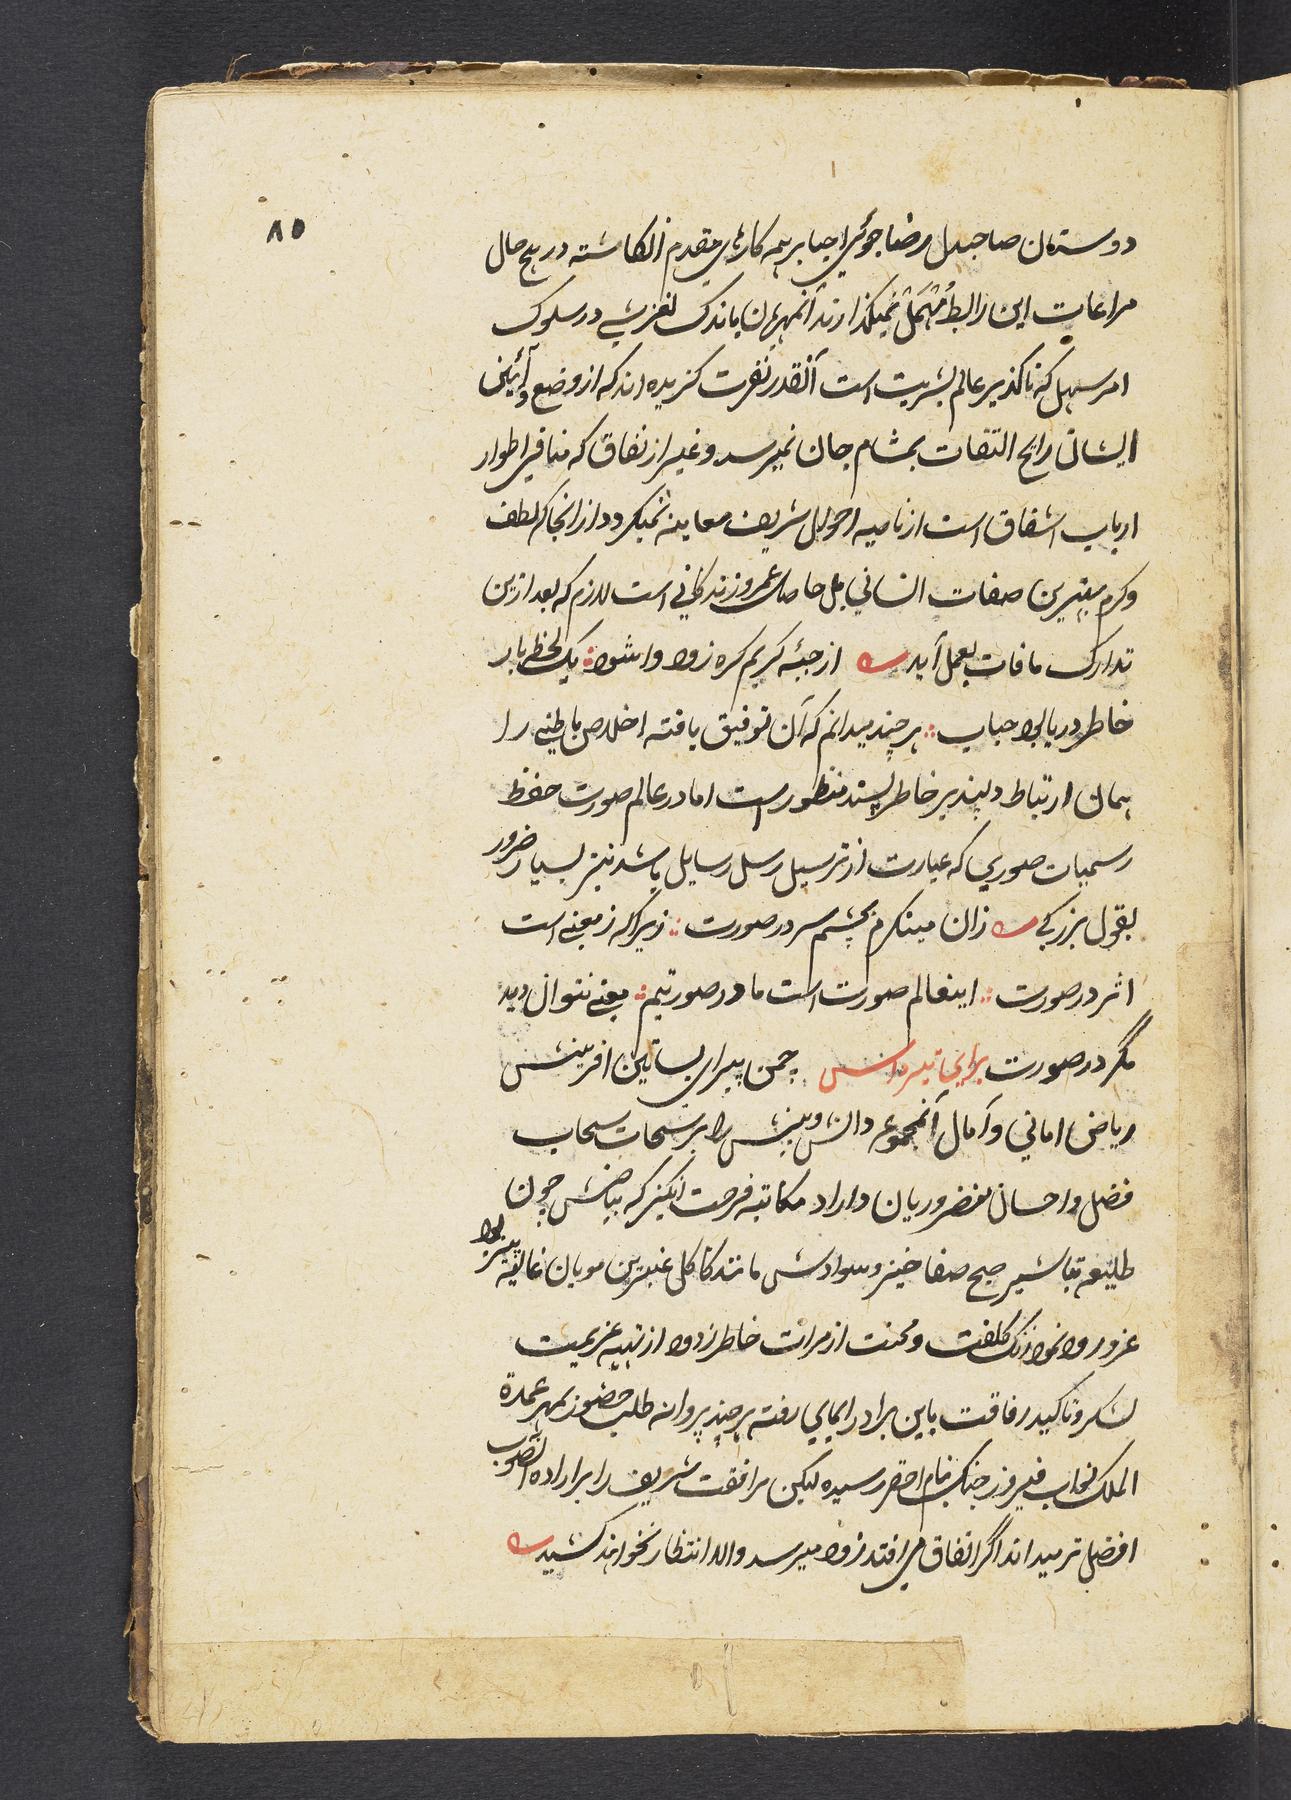 ٨٥
دوستان صاحبدل رضاجوئی احبا بر همه کارهای مقدم انکاشته در هیچ حال
مراعات این رابطه مهمل نمیکذارند آنمهربان باندک لغزشی در سلوک
امر سهل که ناکذیر عالم بشریت است آنقدر نفرت کزیده اند که از وضع و آئین
ایشان رایح التفات بمشام جان نمیرسد و غیر از نفاق که منافی اطوار
ارباب اشفاق است از ناصیه احوال شریف معاینه نمیکردد از انجا که لطف
و کرم بهترین صفات انسانی بل حاصل عمر و زندکانی است لازم که بعد ازین
تدارک مافات بعمل آید از جبهٔ کریم کره زود وا شود یک لحظه بار
خاطر دریا بود حباب هر چند میدانم که آن توفیق یافته اخلاص باطنی را
همان ارتباط دلپذیر خاطر پسند منظور است اما در عالم صورت حفظ
رسمیات صوری که عبارت از ترسیل رسل رسایل باشد نیز بسیار ضرور
بقول بزرکی زان مینکرم بچشم سر در صورت زیرا که ز معنی است
اثر در صورت اینعالم صورت است ما در صورتیم معنی نتوان دید
مکر در صورت برای چمن پیرای بساتین افرینش
ریاض امانی و آمال آنمجموعه دانش و بینش را برشحات سحاب
فضل و احسان مخضر و ریان داراد مکاتبه فرحت انکیز که بیاضش چون
طلیعه تباشیر صبح صفا خیز و سوادش مانند کاکل عنبرین مویان غالیه بیز بود
غرور ورود نمود زنک کلفت و محنت از مرات خاطر زدود از تهیه عزیمت
لشکر و تاکید رفاقت باین برادر ایمای رفته هر چند پروانه طلب حضور بمهر عمدة
الملک نواب فیروز جنک بنام احقر رسیده لیکن مرافقت شریف را بر اراده انصوب
افضل تر میداند اکر اتفاق می افتد زود میرسد والا انتظار نخواهند کشید